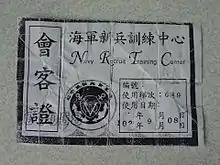 會客證
海軍新兵訓練中心
Navy Recruit Training Center
編號
使用梯次：
使用日期：
年 9 月 08 日